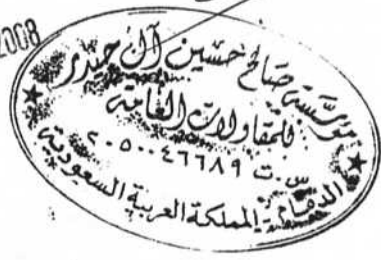 2008
مؤسسة صالح حسين آل حيدر
للمقاولات العامة
س.ت ٢٠٥٠٠٤٦٦٨٩
الدمام - المملكة العربية السعودية